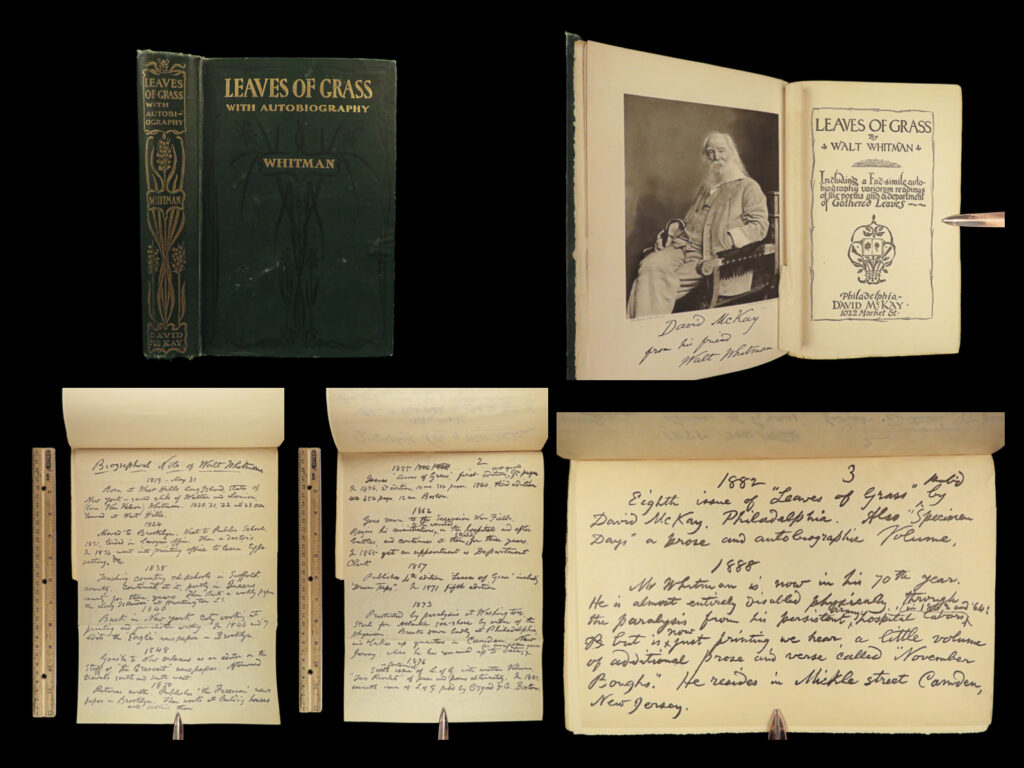 LEAVES
OF GRASS
WITH
AUTOBI-
OGRAPHY
WHITMAN
DAVID
McKAY
LEAVES OF GRASS
WITH AUTOBIOGRAPHY
WHITMAN
David McKay
from his friend
Walt Whitman
LEAVES OF GRASS
By
WALT WHITMAN
Including a Fac-simile auto-
biography variorum readings
of the poems and a department
of Gathered Leaves
Philadelphia
DAVID McKAY
1022 Market St.
Biographical Note of Walt Whitman
1819 - May 31
Born at West Hills Long Island State of
New York - child of Walter and Louisa
Van Velsor Whitman. 1820, 21, 22 and 23
at West Hills.
1824
Moved to Brooklyn. Went to Public School,
1831, tended in lawyers office. then a doctor's.
In 1834 went into printing office to learn type
setting, &c
1838
Teaching country schools in Suffolk
county. Continued at it partly in Queens
county for three years. Then starts a weekly paper
the "Long Islander" at Huntington L. I.
1840
Back in New York city working at
printing and writing. In 1846 and 7
edits the "Eagle" newspaper in Brooklyn
1848
Goes to New Orleans as an editor on the
staff of the "Crescent" newspaper. Afterward
travels south and south west
1850
Returns north. Publishes "the Freeman" news
paper in Brooklyn. Then works at building houses
and selling them
2
1855
Issues "Leaves of Grass" first edition, 95 pages
In 1856, 2d edition, 12 mo 384 pages. 1860, third edition
456 pages 12 mo. Boston.
1862
Goes down to the Secession War Fields.
Begins his ministrations in the hospitals and after
battles and continues at them for three years.
In 1865 gets an appointment as Department
Clerk
1867
Publishes 4th edition "Leaves of Grass" including
"Drum Taps". In 1871 fifth edition
1873
Prostrated by paralysis at Washington.
Starts for Atlantic sea-shore by orders of the
physician. Breaks down badly at Philadelphia,
and takes up quarters in Camden New
Jersey where he has remained up to date,
1876
Sixth issue of L of G with another Volume
"Two Rivulets" of prose and poems alternately. In 1881,
seventh issue of L of G pub'd by Osgood & Co. Boston
3
1882
Eighth issue of "Leaves of Grass" pub'd by
David McKay, Philadelphia. Also "Specimen
Days" a prose and autobiographic Volume,
1888
Mr Whitman is now in his 70th year.
He is almost entirely disabled physically through
the paralysis from his persistent hospital labors in 1863 and '64:
but is now just printing we hear, a little volume
of additional prose and verse called "November
Boughs". He resides in Mickle street Camden,
New Jersey.